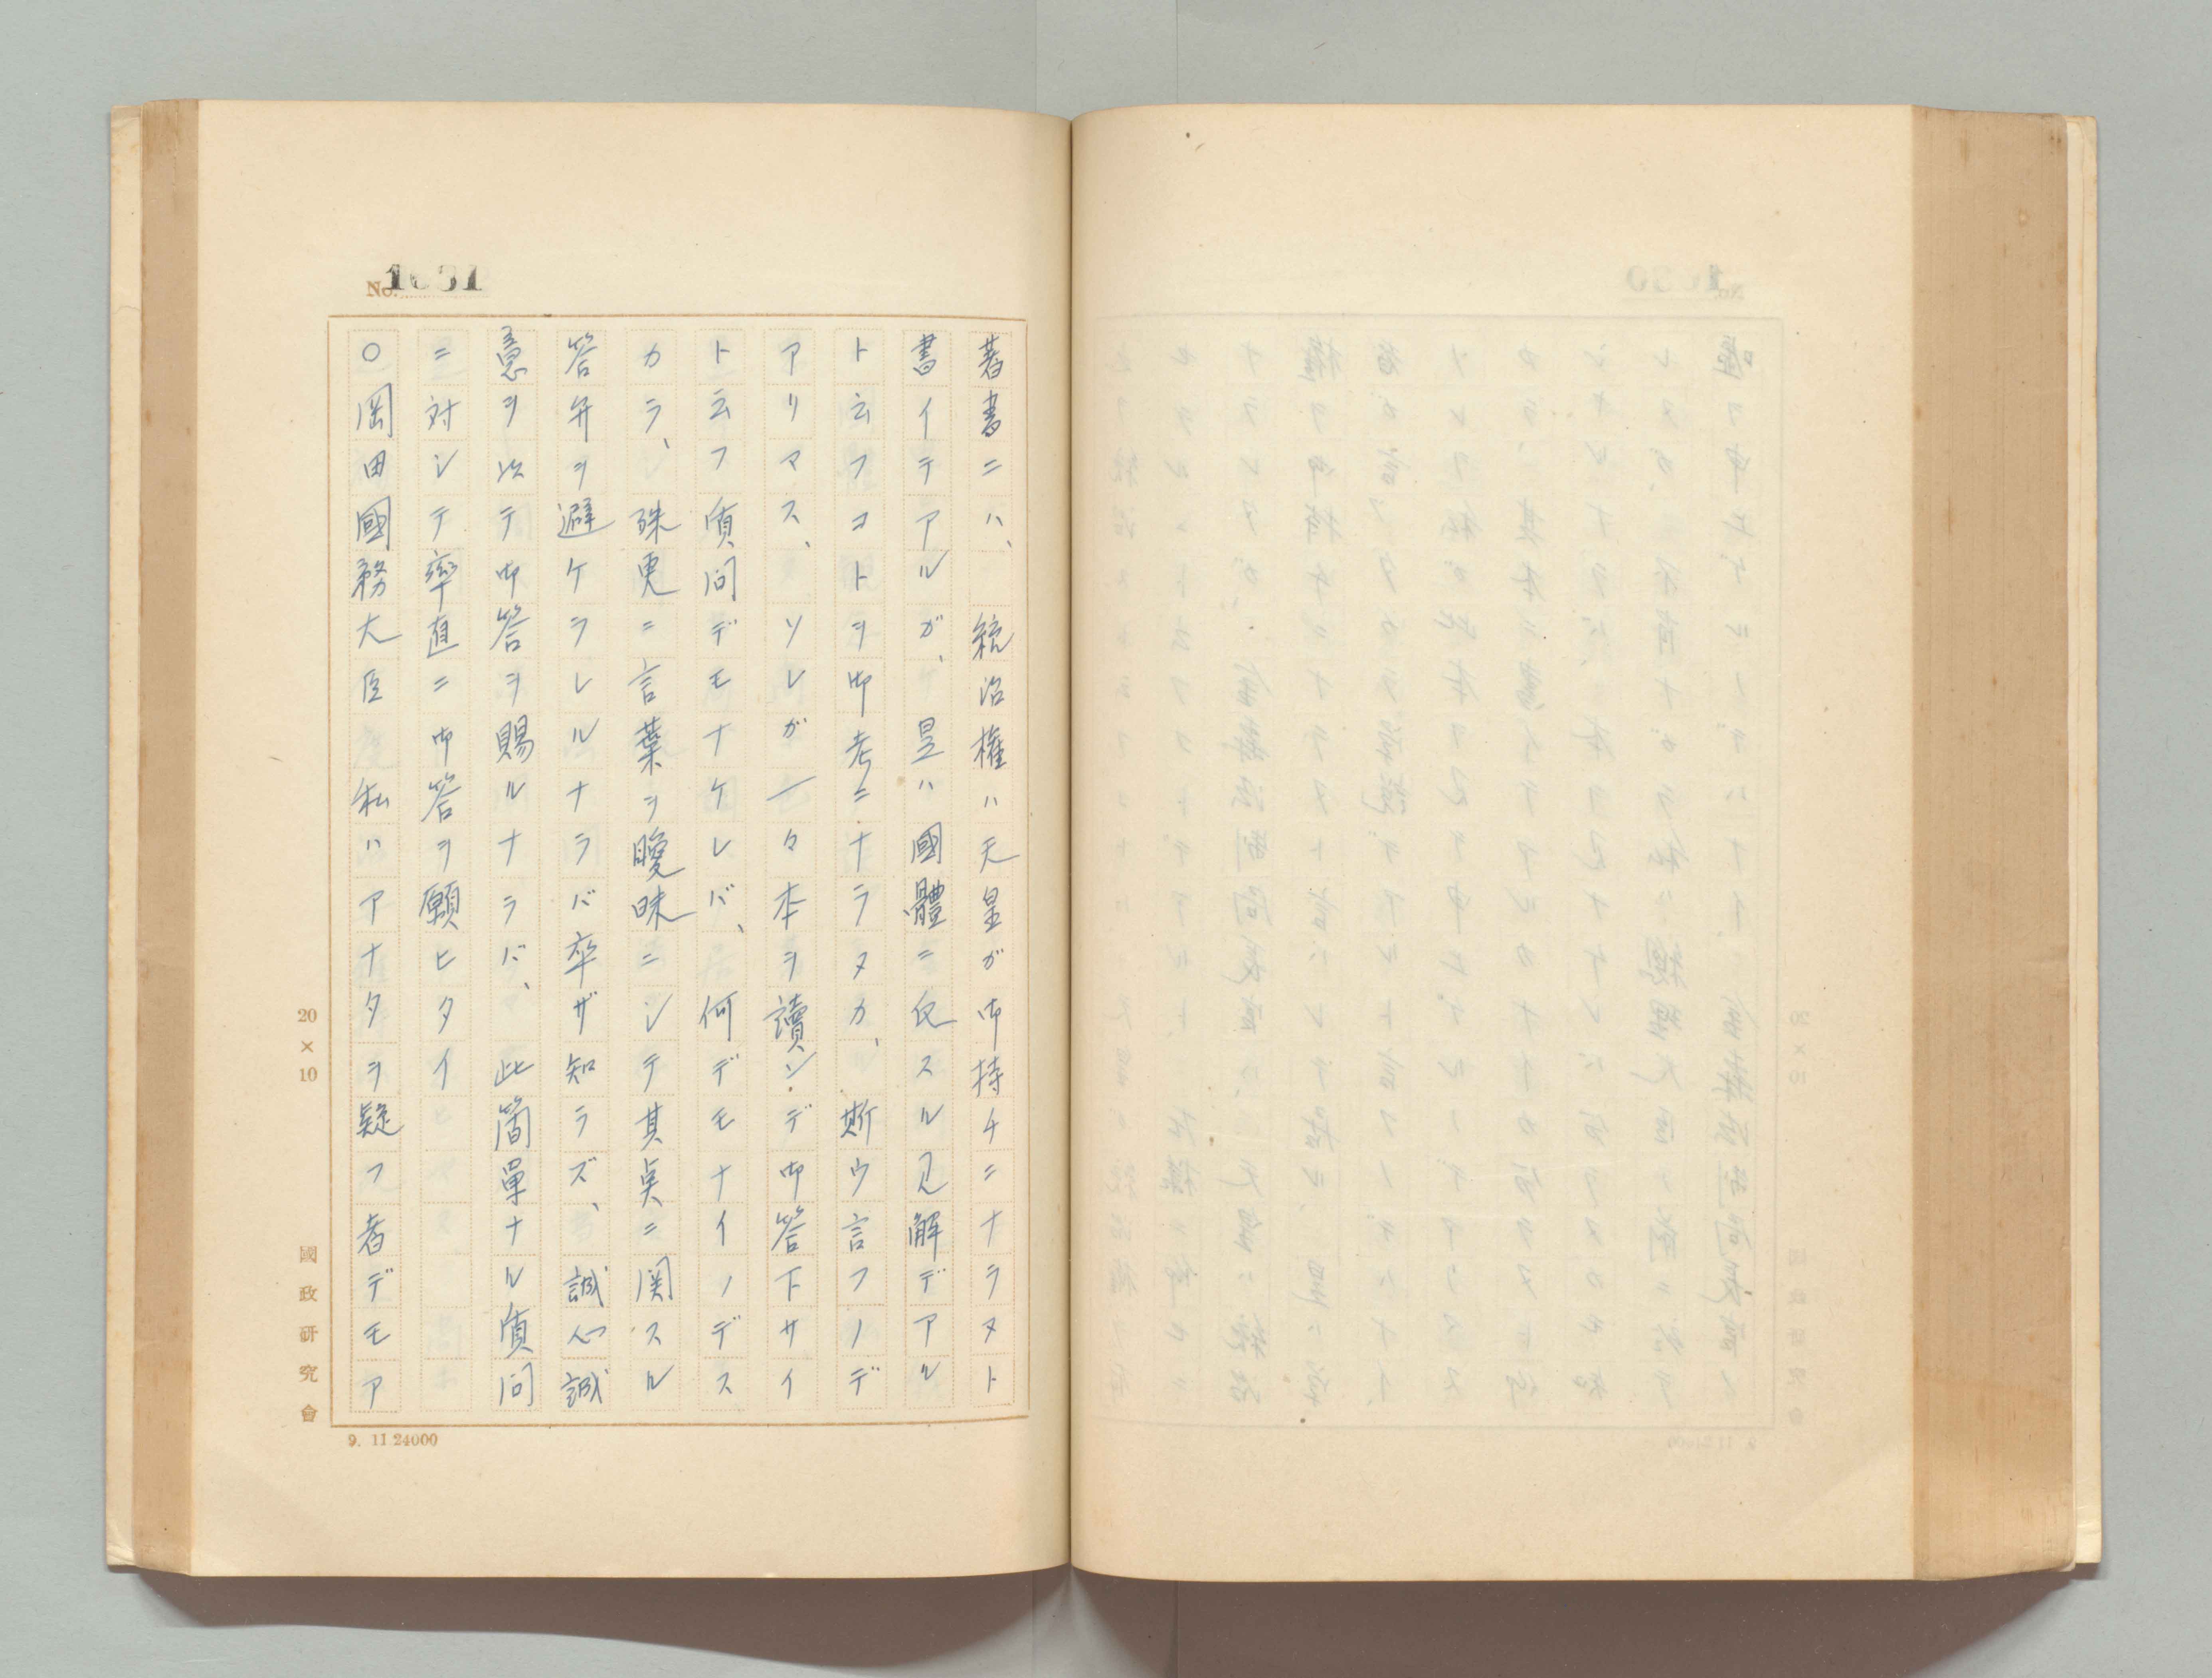 No. 1031
著書ニハ、統治權ハ天皇ガ御持チニナラヌト
書イテアルガ、是ハ國體ニ反スル見解デアル
ト云フコトヲ御考ニナラヌカ、斯ウ言フノデ
アリマス、ソレガ一々本ヲ讀ンデ御答下サイ
ト云フ質問デモナケレバ、何デモナイノデス
カラ、殊更ニ言葉ヲ曖昧ニシテ其点ニ関スル
答弁ヲ避ケラレルナラバ卒ザ知ラズ、誠心誠
意ヲ以テ御答ヲ賜ルナラバ、此箇單ナル質問
ニ対シテ率直ニ御答ヲ願ヒタイ
○岡田國務大臣 私ハアナタヲ疑フ者デモア
20×10
國政研究會
9. 11 24000